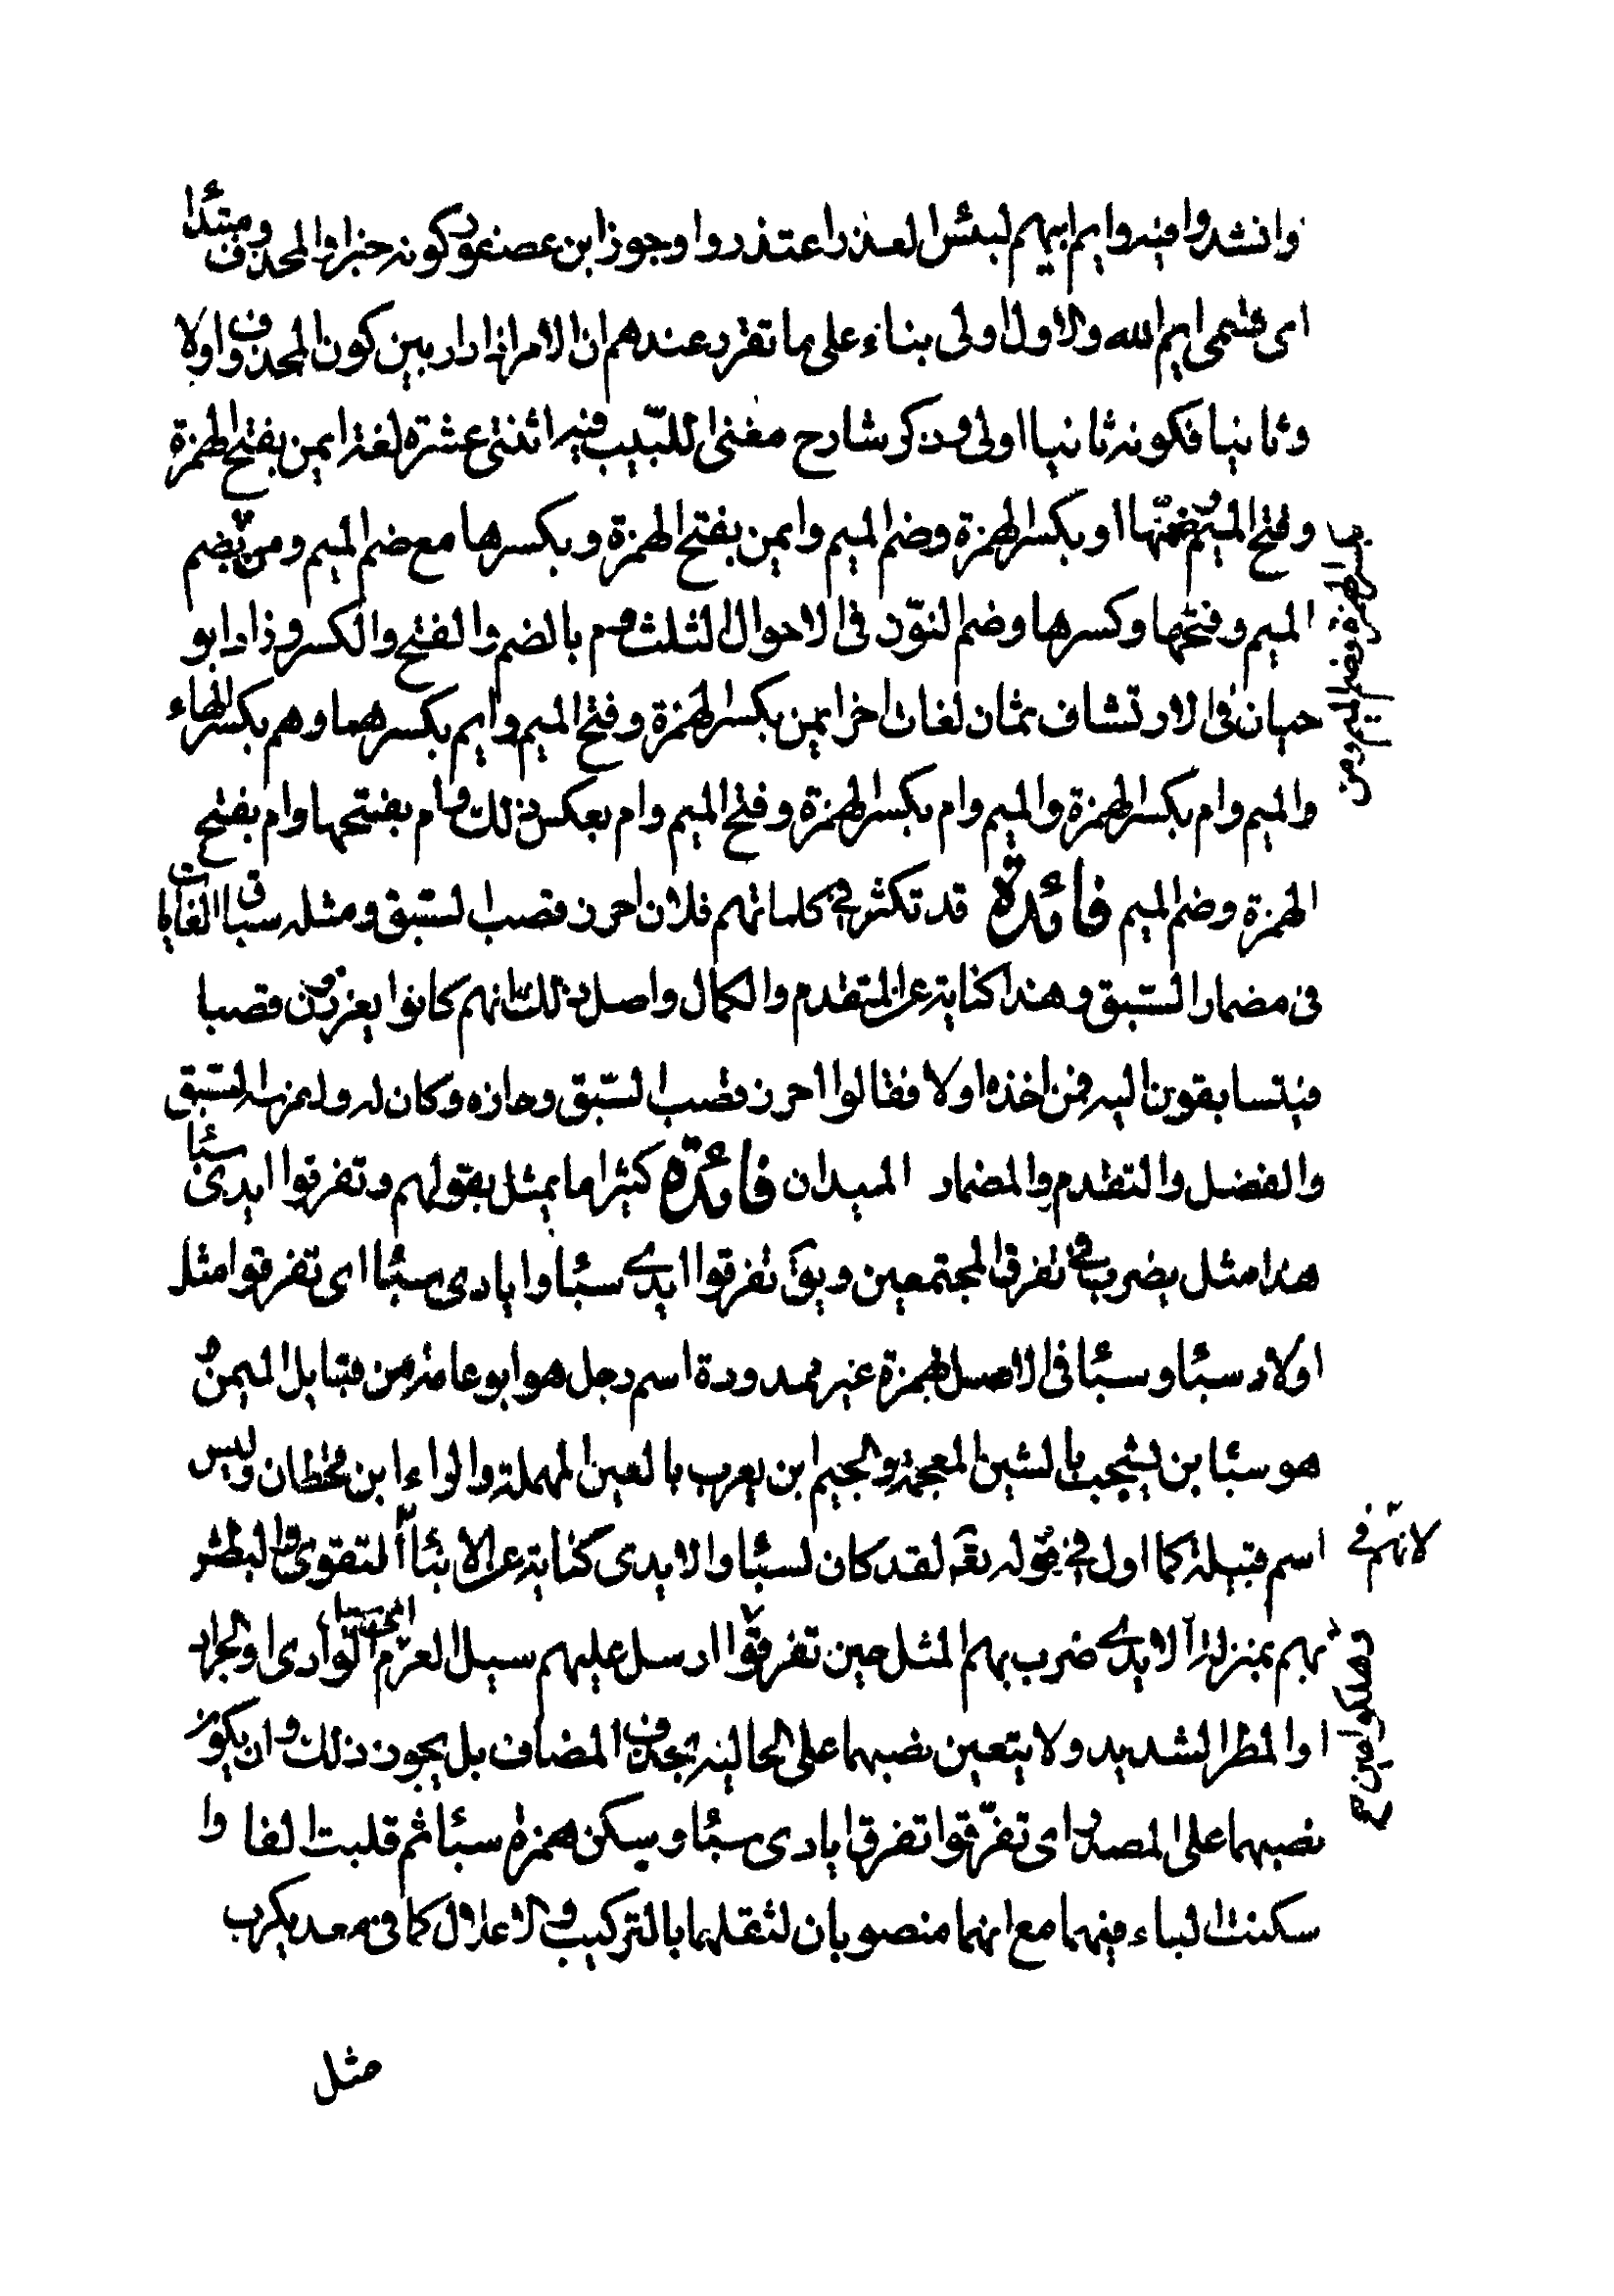 وانشدوا فيه وايم ابيهم لبئس العذر اعتذروا وجوز ابن عصفور كونه خبرا والمحذوف مبتدا
اى قسمى ايم الله والاول اولى بناء على ما تقرر عندهم ان الامر اذا دار بين كون المحذوف اولا
وثانيا فكونه ثانيا اولى وذكر شارح مغنى اللبيب فيه اثنتى عشرة لغة ايمن بفتح الهمزة
وفتح الميم وضمها او بكسر الهمزة وضم الميم وايمن بفتح الهمزة وبكسرها مع ضم الميم ومن بضم
الميم وفتحها وكسرها وضم النون فى الاحوال الثلث وم بالضم والفتح والكسر وزاد ابو
حيان فى الارتشاف ثمان لغات اخر ايمن بكسر الهمزة وفتح الميم وايم بكسرهما وهم بكسر الهاء
والميم وام بكسر الهمزة والميم وام بكسر الهمزة وفتح الميم وام بعكس ذلك وام بفتحها وام بفتح
الهمزة وضم الميم فائدة قد تكثر فى كلماتهم فلان احرز قصب السبق ومثله سباق الغايات
فى مضمار السبق وهذا كناية عن التقدم والكمال واصل ذلك انهم كانوا يغرزون قصبا
فيتسابقون اليه فمن اخذه اولا فقالوا احرز قصب السبق وحازه وكان له ولمزية السبق
والفضل والتقدم والمضمار الميدان فائدة كثيرا ما يمثل بقولهم وتفرقوا ايدى سبأ
هذا مثل يضرب فى تفرق المجتمعين ويق تفرقوا ايدى سبئا وايادى سبئا اى تفرقوا مثل
اولاد سبئا وسبئا فى الاصل بهمزة غير ممدودة اسم رجل هو ابو عامة من قبايل اليمن
هو سبئا بن يشجب بالشين المعجمة والجيم ابن يعرب بالعين المهملة والراء ابن قحطان وليس
اسم قبيلة كما اول فى قوله تعه لقد كان لسبئا والايدى كناية عن الابناء التقوى والبطش
لانهم فى
بهم بمنزلة الايدى ضرب بهم المثل حين تفرقوا ارسل عليهم سيل العرم الوادى او الجراد
وهلكوا حين
او المطر الشديد ولا يتعين نصبهما على الحالية بحذف المضاف بل يجوز ذلك وان يكون
نصبهما على المصدر اى تفرقوا تفرق ايادى سبئا وسكن همزة سبئا ثم قلبت الفا وا
سكنت الياء فيهما مع انهما منصوبان لثقلهما بالتركيب والاعلال كما فى معد يكرب
مثل
بكسر الهمزة وضم الميم ومن